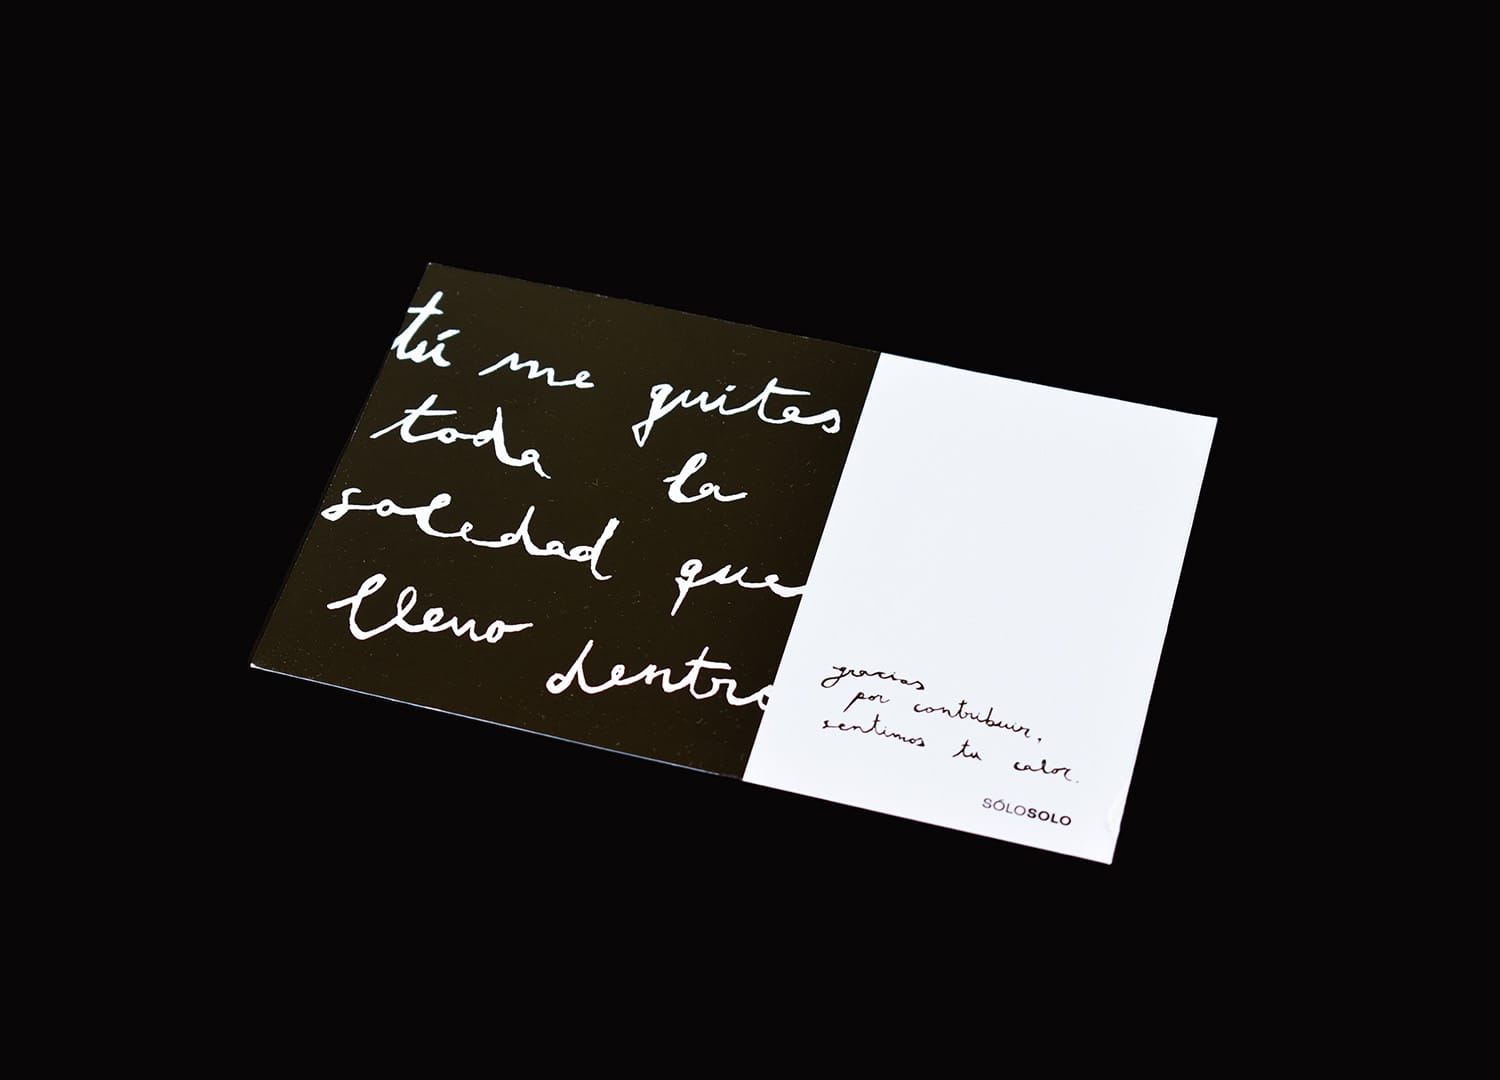 tú me quites
toda la
soledad que
lleno dentro
gracias
por contribuir,
sentimos tu calor.
SÓLOSOLO